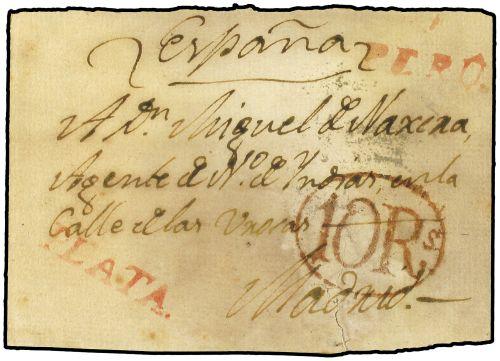 España
PERO.
A Dn. Miguel de Naxera,
Agente de Ns. de Yndias, en la
Calle de las Urosas
10R
PLATA.
Madrid.